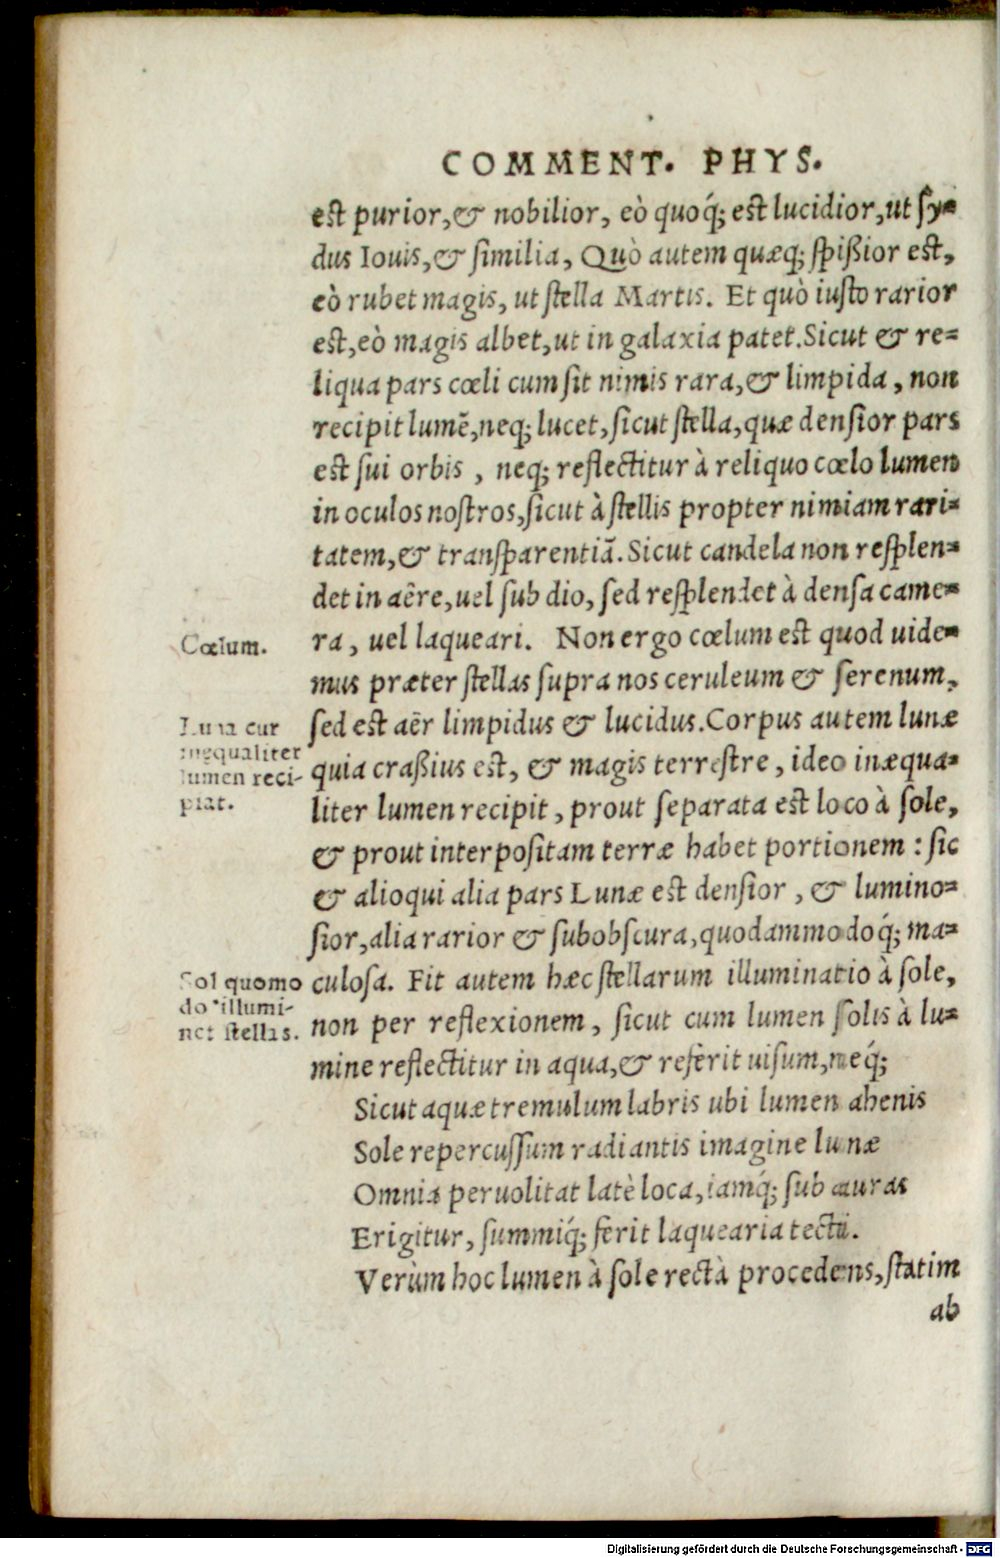 COMMENT. PHYS.
est purior,& nobilior, eò quoq́; est lucidior,ut ſy-
dus Iouis,& ſimilia, Quò autem quæq; ſpißior est,
eò rubet magis, ut ſtella Martis. Et quò iuſto rarior
est,eò magis albet,ut in galaxia patet.Sicut & re-
liqua pars cœli cum ſit nimis rara,& limpida, non
recipit lumē,neq; lucet,ſicut ſtella,quæ denſior pars
est ſui orbis, neq; reflectitur à reliquo cœlo lumen
in oculos noſtros,ſicut à ſtellis propter nimiam rari-
tatem,& tranſparentiā.Sicut candela non reſplen-
det in aëre,uel ſub dio, ſed reſplendet à denſa came-
Cœlum.
ra, uel laqueari. Non ergo cœlum est quod uide-
mus præter ſtellas ſupra nos ceruleum & ſerenum,
Luna cur
inequaliter
lumen reci-
piat.
ſed est aër limpidus & lucidus.Corpus autem lunæ
quia craßius est, & magis terreſtre, ideo inæqua-
liter lumen recipit, prout ſeparata est loco à ſole,
& prout interpoſitam terræ habet portionem : ſic
& alioqui alia pars Lunæ est denſior, & lumino-
ſior,alia rarior & ſubobſcura,quodammodoq́; ma-
Sol quomo
do illumi-
net ſtellas.
culoſa. Fit autem hæc ſtellarum illuminatio à ſole,
non per reflexionem, ſicut cum lumen ſolis à lu-
mine reflectitur in aqua,& referit uiſum,neq́;
Sicut aquæ tremulum labris ubi lumen ahenis
Sole repercuſſum radiantis imagine lunæ
Omnia peruolitat latè loca,iamq́; ſub auras
Erigitur, ſummiq́; ferit laquearia tecti.
Verùm hoc lumen à ſole rectà procedens,ſtatim
ab
Digitalisierung gefördert durch die Deutsche Forschungsgemeinschaft - DFG